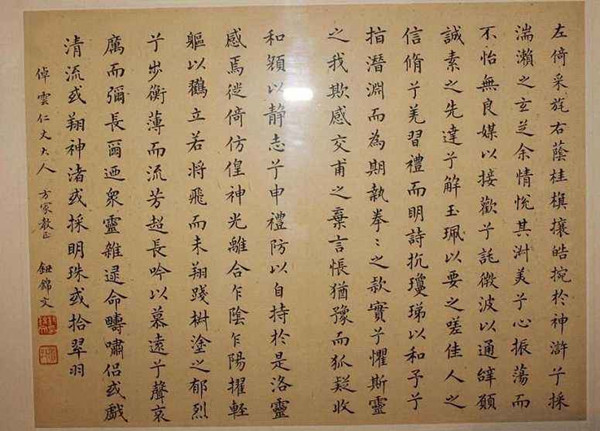 左倚采旄右蔭桂旗攘皓捥於神滸兮採
湍瀨之玄芝余情悅其淑美兮心振蕩而
不怡無良媒以接歡兮託微波以通辭願
誠素之先達兮解玉珮以要之嗟佳人之
信脩兮羌習禮而明詩抗瓊珶以和予兮
指潛淵而為期執拳〻之款實兮懼斯靈
之我欺感交甫之棄言悵猶豫而狐疑收
和顏以静志兮申禮防以自持於是洛靈
感焉徙倚彷徨神光離合乍陰乍陽擢輕
軀以鶴立若將飛而未翔踐椒塗之郁烈
兮步衡薄而流芳超長吟以慕遠兮聲哀
厲而彌長爾迺衆靈雜遝命疇嘯侶或戲
清流或翔神渚或採明珠或拾翠羽
倬雲仁丈大人方家教正 鈕錦文